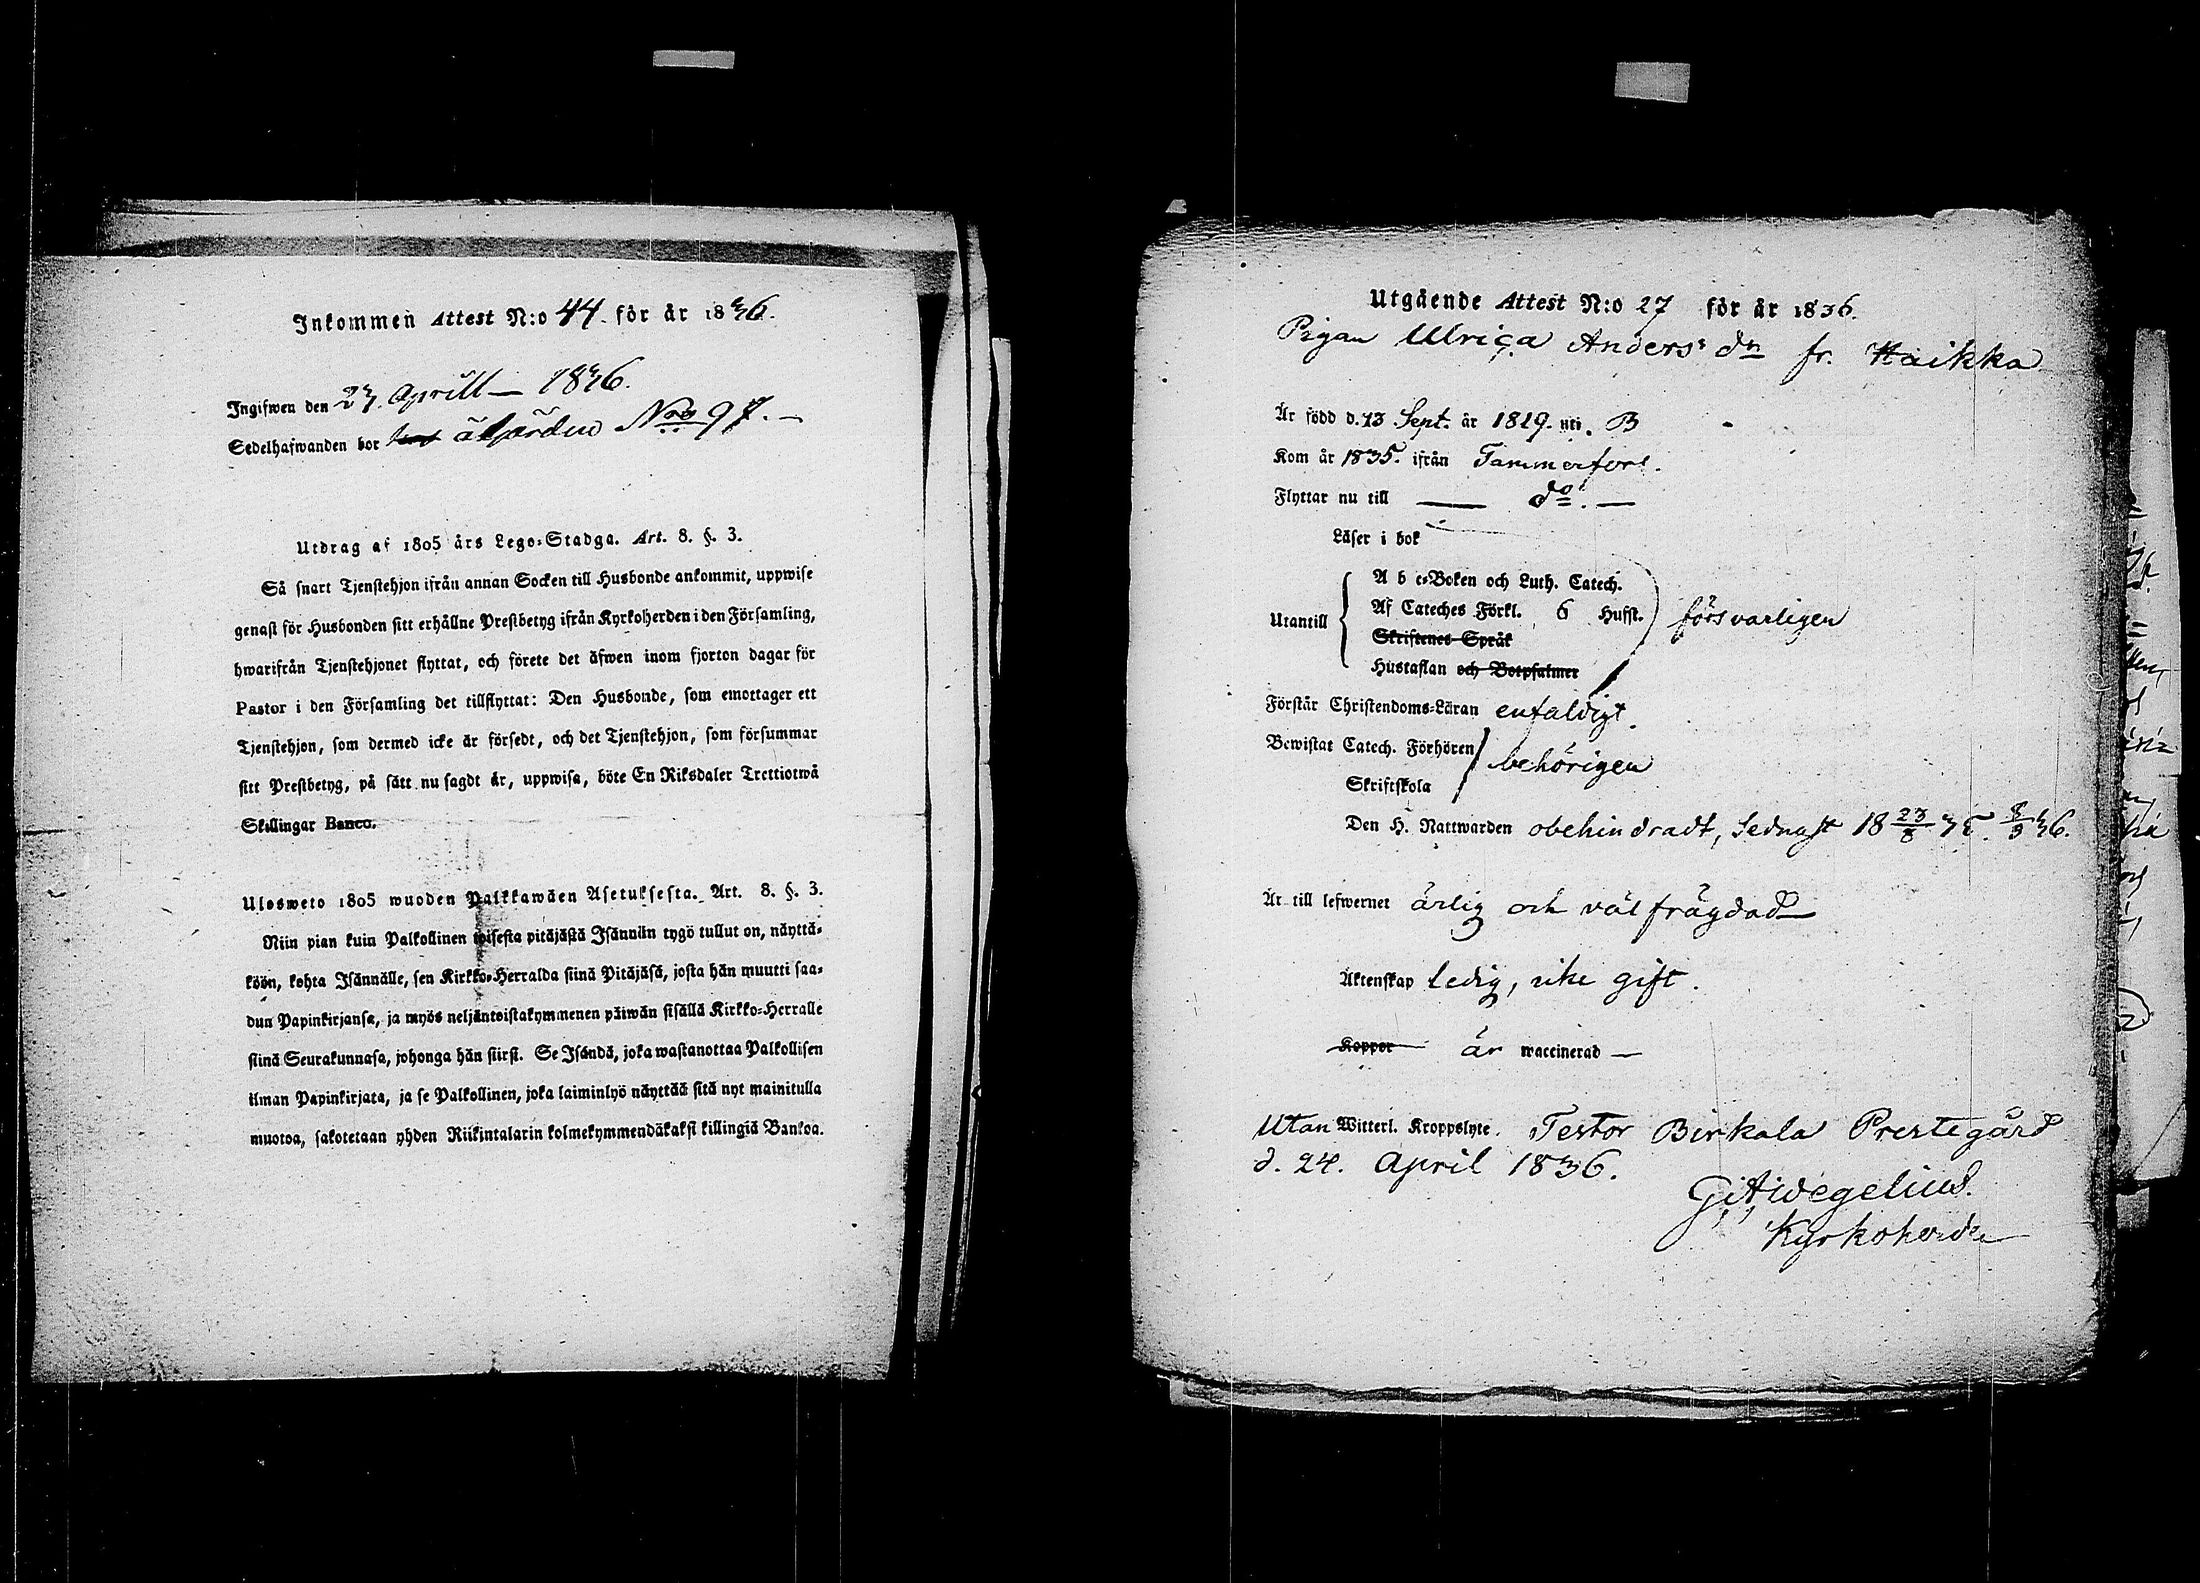 Inkommen Attest N:o 44. för år 1836.
Ingifwen den 27. Aprill — 1836.
Sedelhafwanden bor å gården No 97. —
Utdrag af 1805 års Lego-Stadga. Art. 8. §. 3.
Så snart Tjenstehjon ifrån annan Socken till Husbonde ankommit, uppwise
genast för Husbonden sitt erhållne Prestbetyg ifrån Kyrkoherden i den Församling,
hwarifrån Tjenstehjonet flyttat, och förete det äfwen inom fjorton dagar för
Pastor i den Församling det tillflyttat: Den Husbonde, som emottager ett
Tjenstehjon, som dermed icke är försedt, och det Tjenstehjon, som försummar
sitt Prestbetyg, på sätt nu sagdt är, uppwisa, böte En Riksdaler Trettiotwå
Skillingar Banco.
Ulosweto 1805 wuoden Palkkawäen Asetuksesta. Art. 8. §. 3.
Niin pian kuin Palkollinen toisesta pitäjästä Isännän tygö tullut on, näyttä-
köön, kohta Isännälle, sen Kirkko-Herralda siinä Pitäjäsä, josta hän muutti saa-
dun Papinkirjansa, ja myös neljäntoistakymmenen päiwän sisällä Kirkko-Herralle
siinä Seurakunnasa, johonga hän siirsi. Se Isändä, joka wastanottaa Palkollisen
ilman Papinkirjata, ja se Palkollinen, joka laiminlyö näyttää sitä nyt mainitulla
muotoa, sakotetaan yhden Riikintalarin kolmekymmendäkaksi killingiä Bankoa.
Utgående Attest N:o 27 för år 1836.
Pigan Ulrica Anders dn fr. Haikka
Är född d. 13 Sept. år 1819. uti B
Kom år 1835. ifrån Tammerfors.
Flyttar nu till — do. —
Läser i bok
A b c-Boken och Luth. Catech.
Utantill Af Cateches Förkl. 6 Hufst. försvarligen
Skriftenes Språk
Hustaflan och Botpsalmer
Förstår Christendoms-Läran enfaldigt.
Bewistat Catech. Förhören behörigen
Skriftskola
Den H. Nattwarden obehindradt, sednast 18 23/8 35. 36.
Är till lefwernet ärlig och välfrägdad
Äktenskap ledig, icke gift.
Koppor är waccinerad —
Utan Witterl. Kroppslyte. Testor Birkala Prestegård
d. 24. April 1836.
G. A. Wegelius.
Kyrkoherde